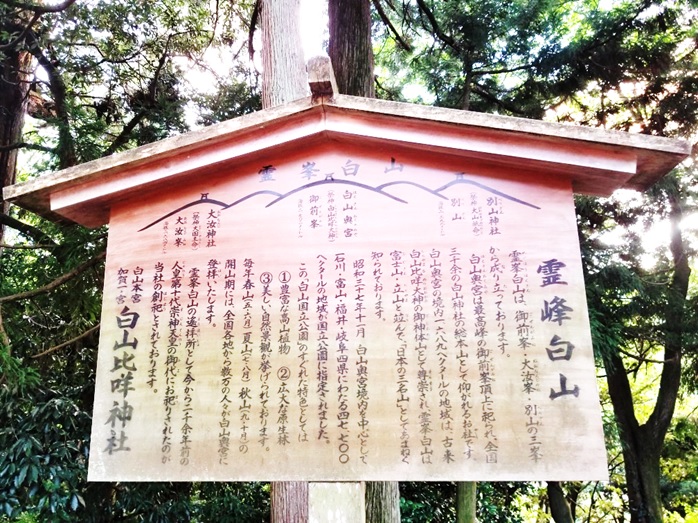 霊峯白山
別山神社
別山
白山奥宮
御前峯
大汝神社
大汝峯
霊峰白山
霊峯白山は、御前峯・大汝峯・別山の三峯
から成り立っております。
白山奥宮は最高峰の御前峯頂上に祀られ、全国
三千余の白山神社の総本山として仰がれるお社です。
白山奥宮の境内一六八九ヘクタールの地域は、古来
白山比咩大神の御神体山として尊崇され、霊峯白山は
富士山・立山と並んで、「日本の三名山」としてあまねく
知られております。
昭和三十七年十一月 白山奥宮境内を中心として
石川・富山・福井・岐阜四県にわたる四七七〇〇
ヘクタールの地域が国立公園に指定されました。
この「白山国立公園」のすぐれた特色としては
①豊富な高山植物 ②広大な原生林
③美しい自然景観が挙げられております。
毎年春山(五六月)夏山(七八月)秋山(九十月)の
開山期には、全国各地から数万の人々が白山奥宮に
登拝いたします。
霊峯白山の遙拝所として今から二千余年前の
人皇第十代崇神天皇の御代にお祀りされたのが
当社の創祀とされております。
白山本宮
加賀一宮
白山比咩神社